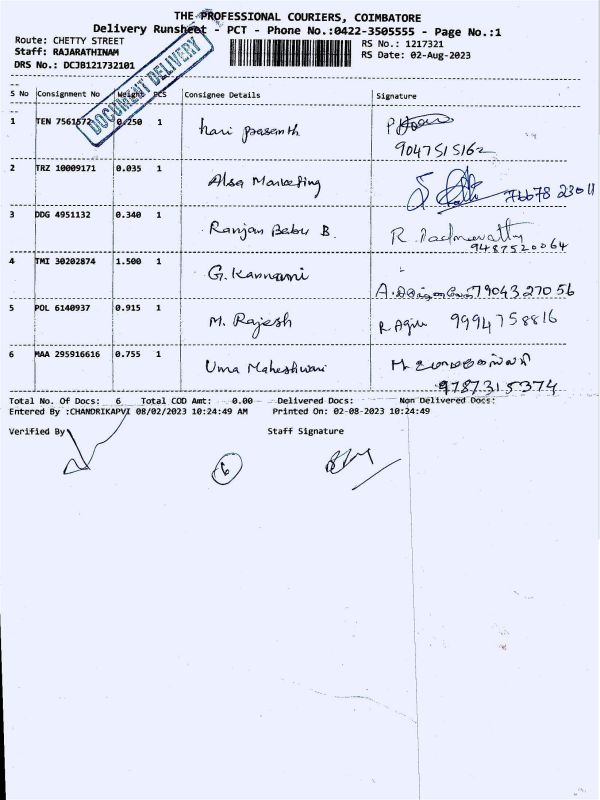 THE PROFESSIONAL COURIERS, COIMBATORE
Delivery Runsheet - PCT - Phone No.:0422-3505555 - Page No.:1
Route: CHETTY STREET
RS No.: 1217321
Staff: RAJARATHINAM
RS Date: 02-Aug-2023
DRS No.: DCJB121732101
DOCUMENT DELIVERY
S No Consignment No Weight PCS Consignee Details Signature
1 TEN 7561572 0.250 1 hari prasanth
9047515162
2 TRZ 10009171 0.035 1 Alsa Marketing 76678 23011
3 DDG 4951132 0.340 1 Ranjan Babu B. R. Padmavathy
9487520064
4 TMI 30202874 1.500 1 G. Kannami
7904327056
5 POL 6140937 0.915 1 M. Rajesh R Agin 9994758816
6 MAA 295916616 0.755 1 Uma Maheshwari
9787315374
Total No. Of Docs: 6 Total COD Amt: 0.00 Delivered Docs: Non Delivered Docs:
Entered By :CHANDRIKAPVI 08/02/2023 10:24:49 AM Printed On: 02-08-2023 10:24:49
Verified By Staff Signature
6